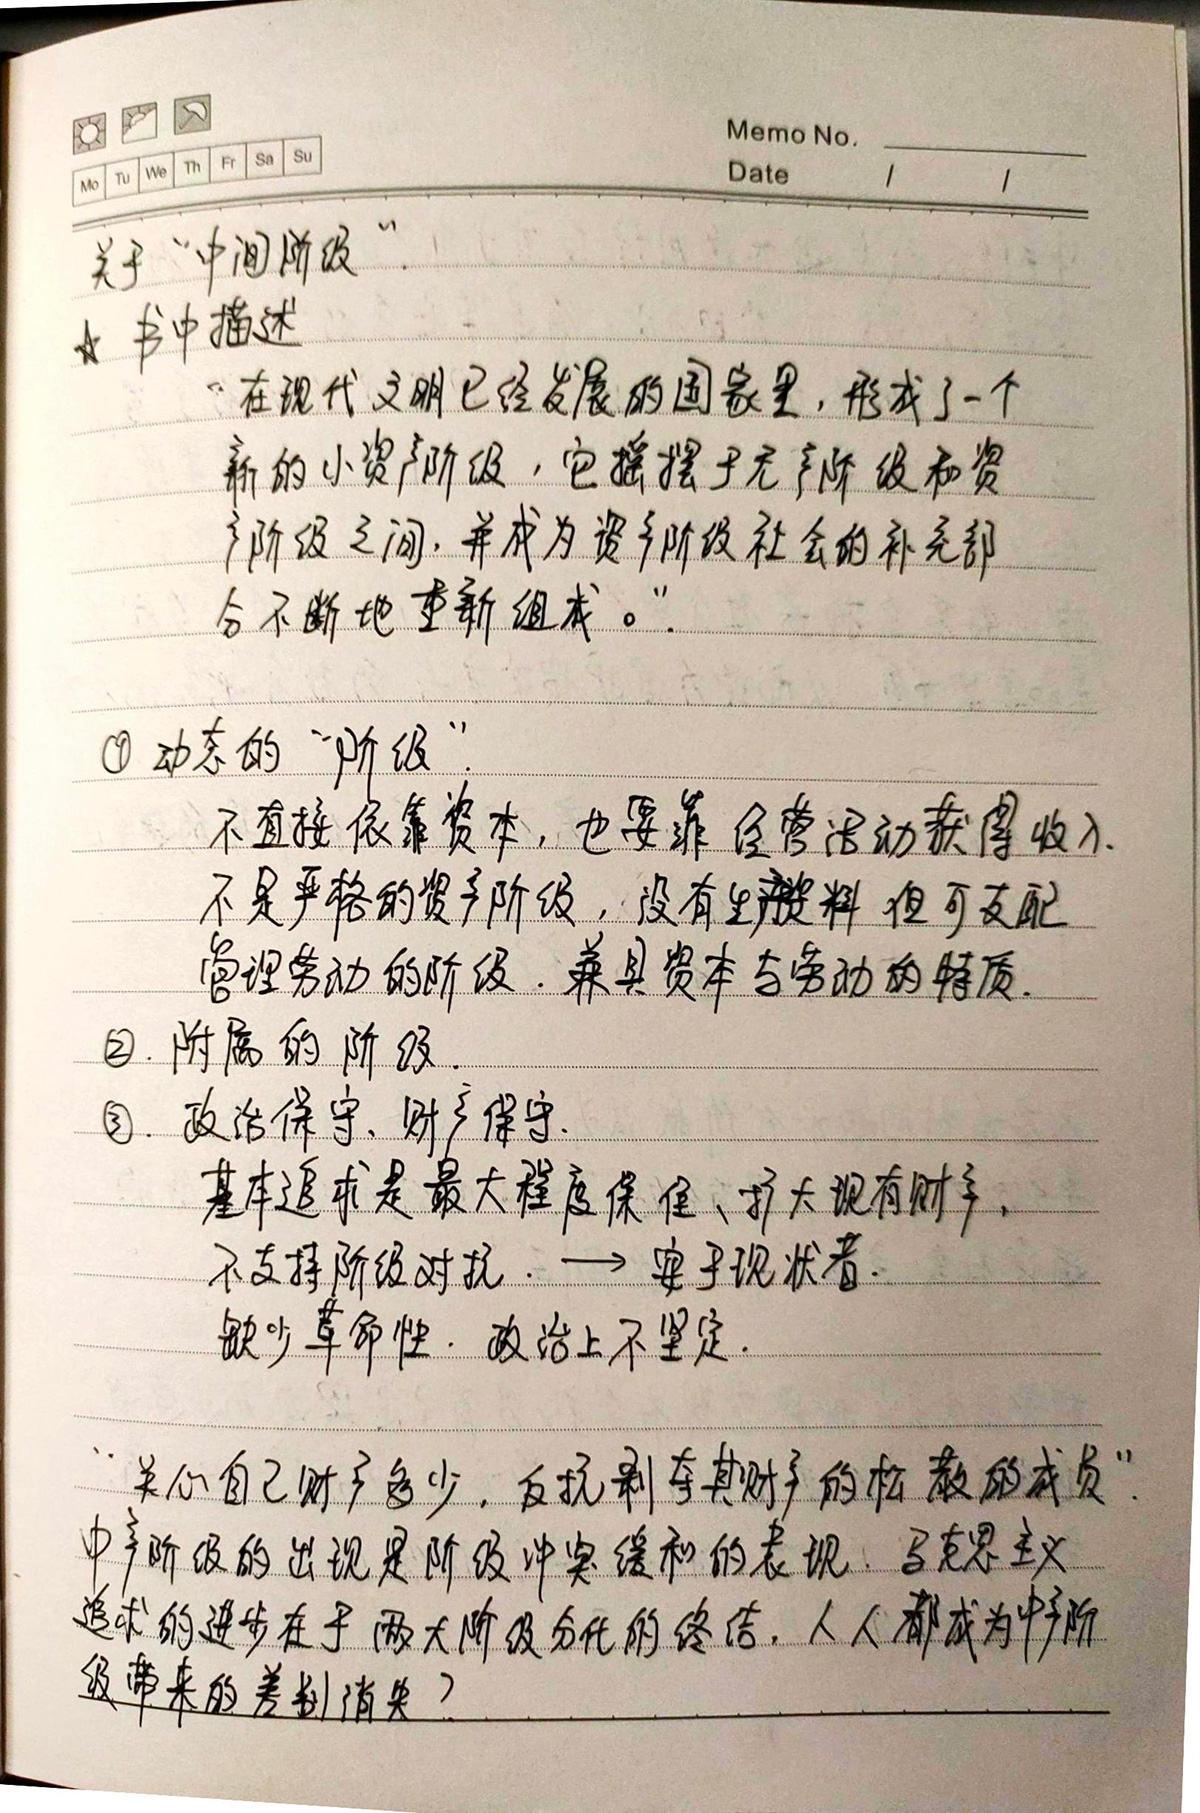 Memo No.
Mo Tu We Th Fr Sa Su
Date / /
关于“中间阶级”.
☆ 书中描述
“在现代文明已经发展的国家里，形成了一个
新的小资产阶级，它摇摆于无产阶级和资
产阶级之间，并成为资产阶级社会的补充部
分不断地重新组成。”.
① 动态的“阶级”.
不直接依靠资本，也要靠经营活动获得收入.
不是严格的资产阶级，没有生产资料但可支配
管理劳动的阶级. 兼具资本与劳动的特质.
②. 附属的阶级.
③. 政治保守、财产保守.
基本追求是最大程度保住、扩大现有财产，
不支持阶级对抗. → 安于现状者.
缺少革命性. 政治上不坚定.
“关心自己财产多少，反抗剥夺其财产的松散的成员”.
中产阶级的出现是阶级冲突缓和的表现. 马克思主义
追求的进步在于两大阶级分化的终结，人人都成为中产阶
级带来的差别消失？